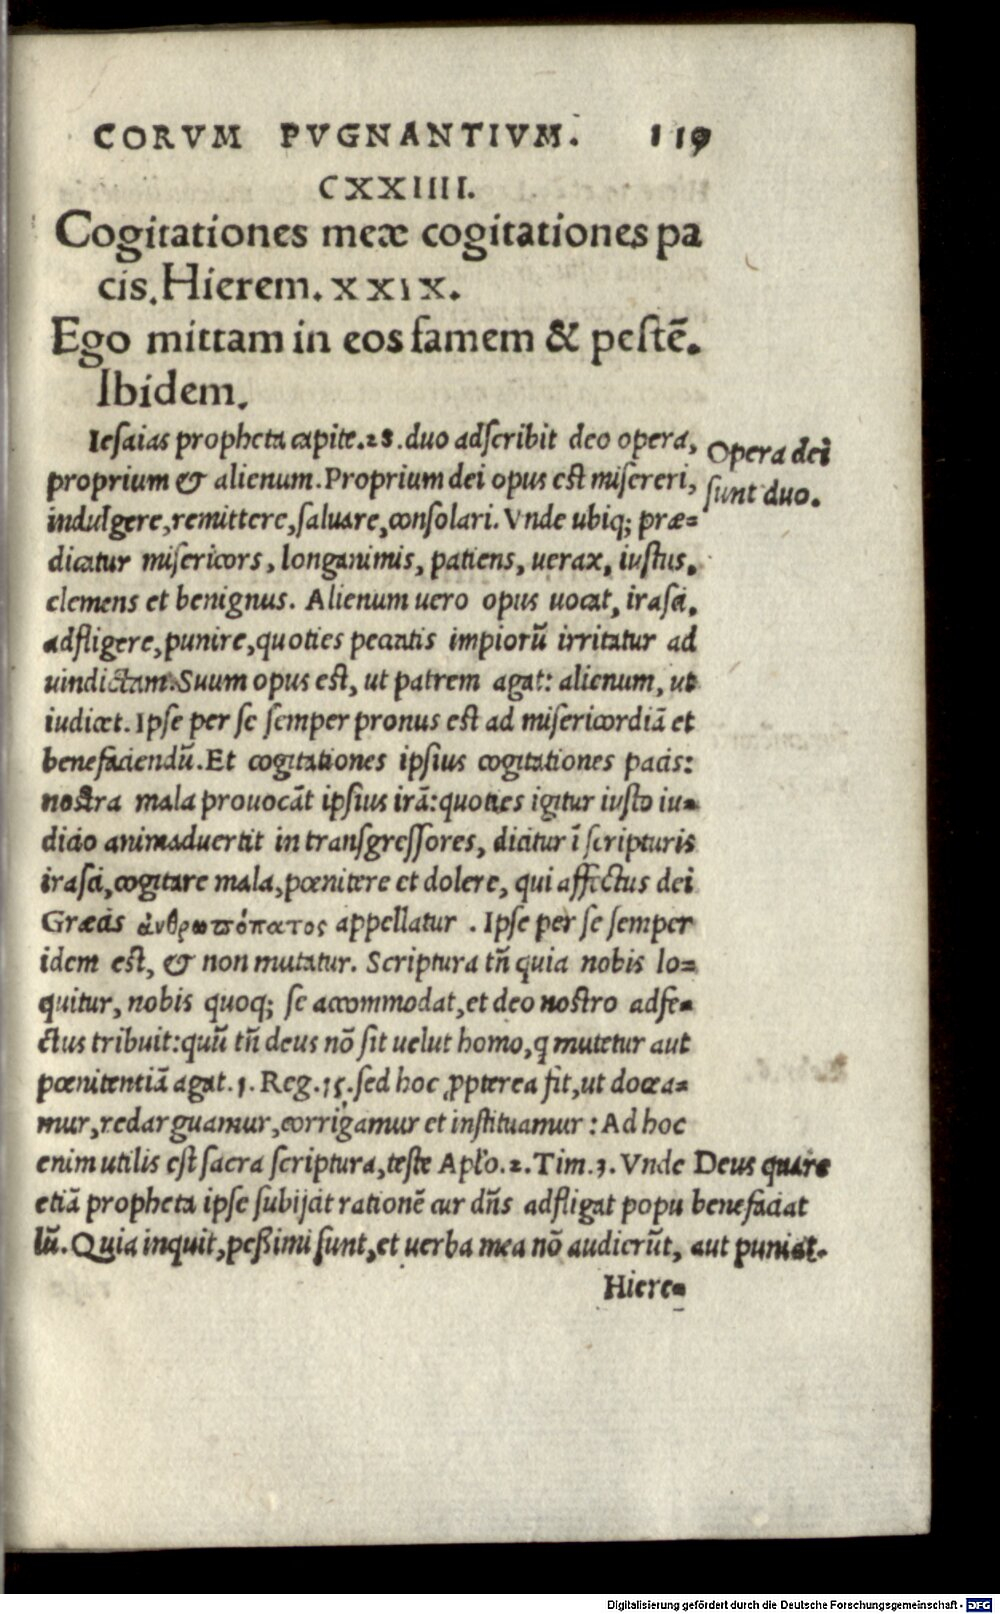 CORVM PVGNANTIVM. 119
CXXIIII.
Cogitationes meæ cogitationes pa
cis. Hierem. XXIX.
Ego mittam in eos famem & pestē.
Ibidem.
Iesaias propheta capite.28.duo adscribit deo opera,
proprium & alienum. Proprium dei opus est misereri,
indulgere, remittere, saluare, consolari. Vnde ubiq; præ=
dicatur misericors, longanimis, patiens, uerax, iustus,
clemens et benignus. Alienum uero opus uocat, irasci,
adfligere, punire, quoties peccatis impiorū irritatur ad
uindictam. Suum opus est, ut patrem agat: alienum, ut
iudicet. Ipse per se semper pronus est ad misericordiā et
benefaciendū. Et cogitationes ipsius cogitationes pacis:
nostra mala prouocāt ipsius irā: quoties igitur iusto iu=
dicio animaduertit in transgressores, dicitur ī scripturis
irasci, cogitare mala, pœnitere et dolere, qui affectus dei
Græcis ἀνθρωπόπατος appellatur . Ipse per se semper
idem est, & non mutatur. Scriptura tñ quia nobis lo=
quitur, nobis quoq; se accommodat, et deo nostro adfe=
ctus tribuit: quū tñ deus nō sit uelut homo, q mutetur aut
pœnitentiā agat. 1. Reg. 15. sed hoc ꝓpterea fit, ut docea=
mur, redarguamur, corrigamur et instituamur : Ad hoc
enim utilis est sacra scriptura, teste Apło. 2. Tim. 3. Vnde
etiā propheta ipse subijcit rationē cur dñs adfligat popu
lū. Quia inquit, peßimi sunt, et uerba mea nō audierūt,
Hiere=
Opera dei
sunt duo.
Deus quare
benefaciat
aut puniat.
Digitalisierung gefördert durch die Deutsche Forschungsgemeinschaft - DFG